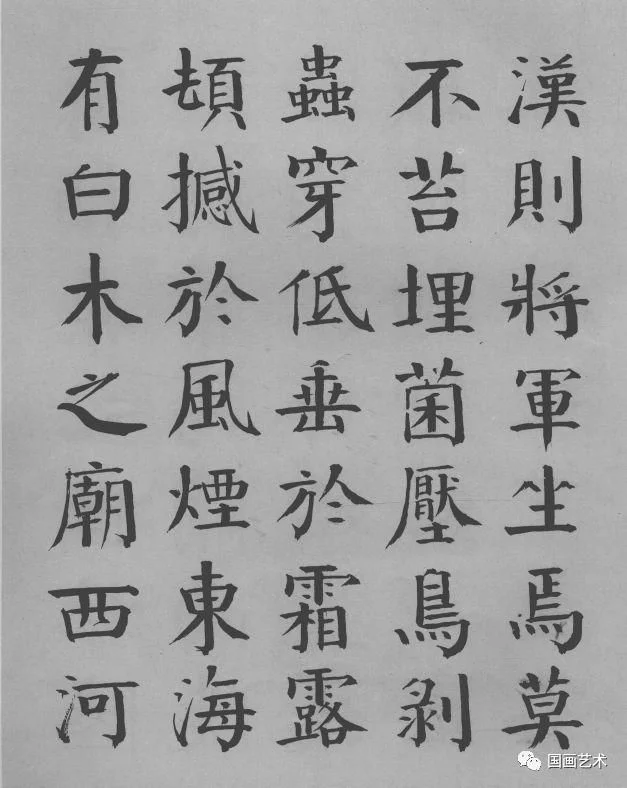 漢則將軍坐焉莫
不苔埋菌壓鳥剥
蟲穿低垂於霜露
頓撼於風煙東海
有白木之廟西河
国画艺术